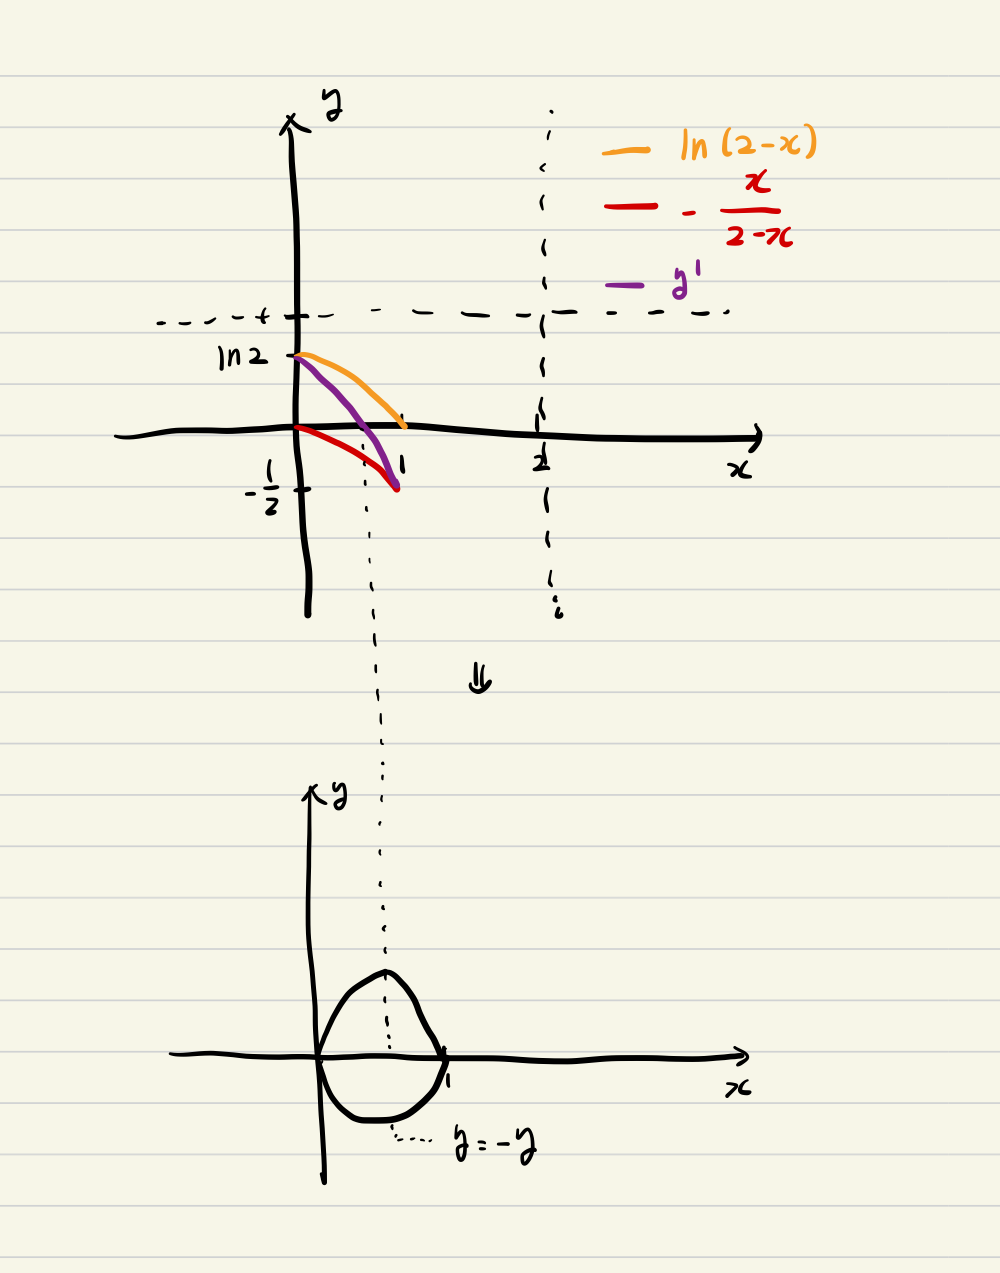 y
ln (2-x)
- x/(2-x)
y'
ln 2
1
2
x
- 1/2
⇓
y
1
x
y = -y